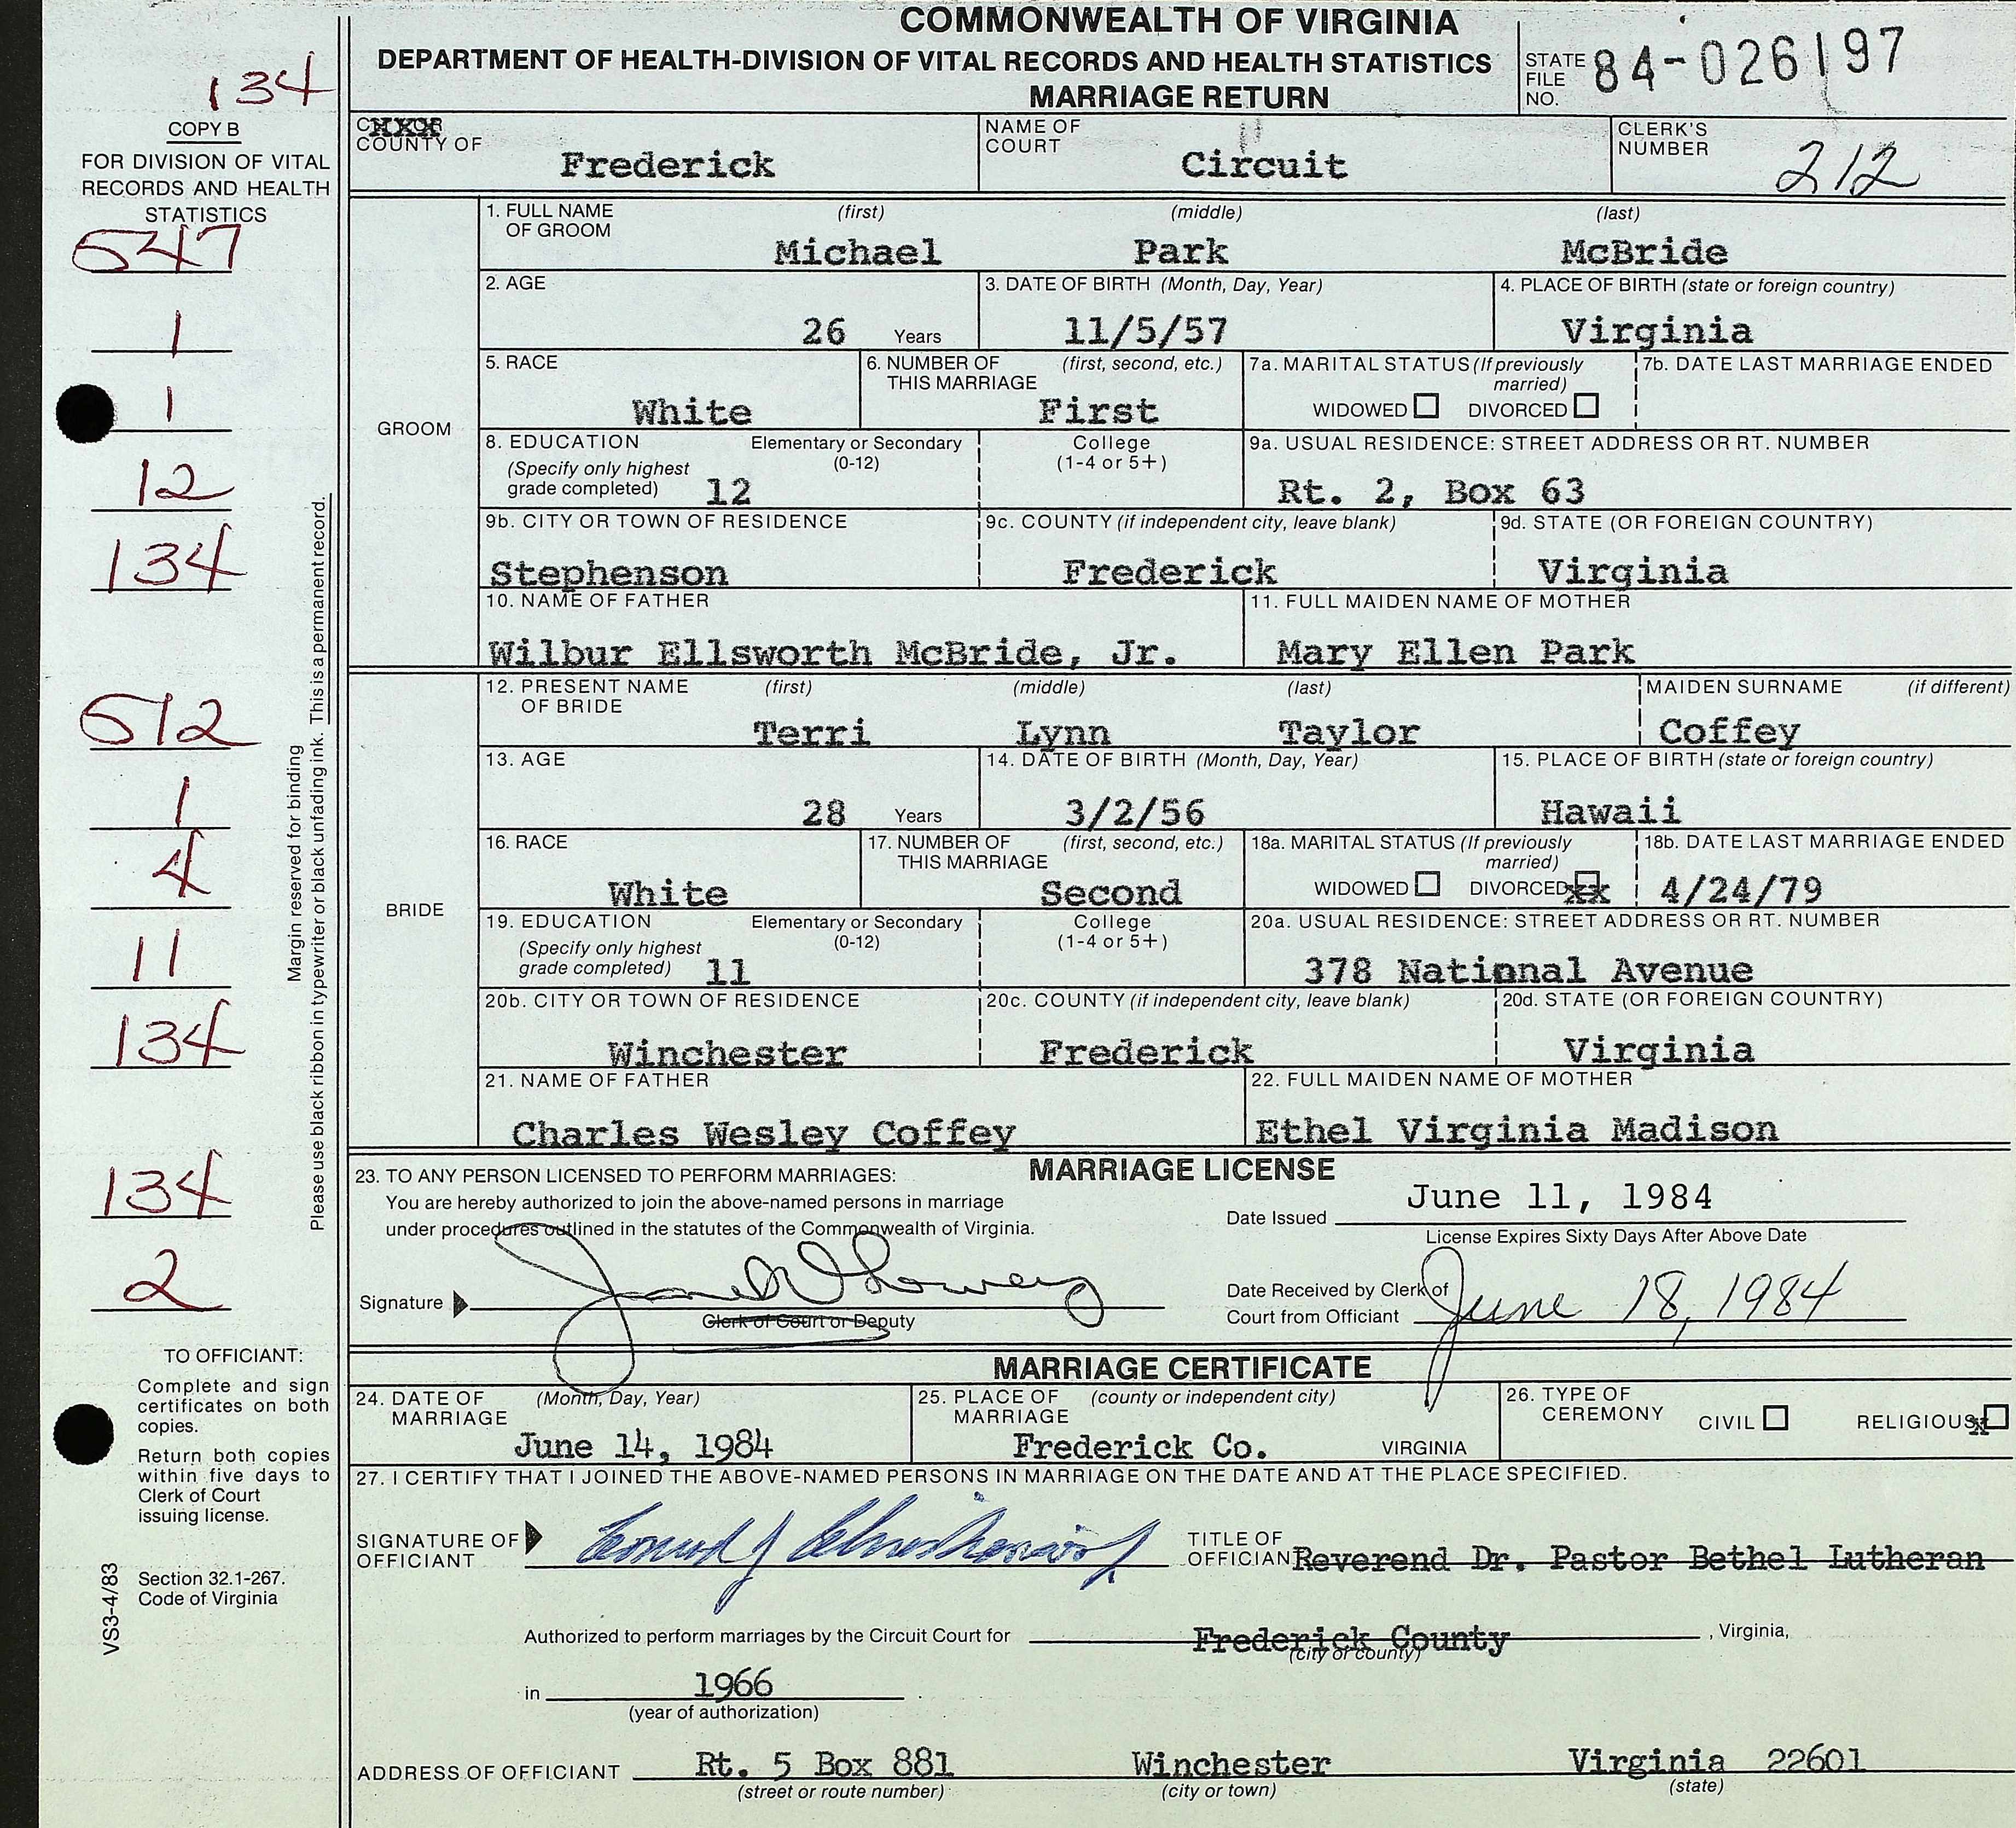 COMMONWEALTH OF VIRGINIA
DEPARTMENT OF HEALTH-DIVISION OF VITAL RECORDS AND HEALTH STATISTICS
MARRIAGE RETURN
STATE FILE NO. 84-026197
134
COPY B
FOR DIVISION OF VITAL
RECORDS AND HEALTH
STATISTICS
547
1
1
12
134
512
1
4
11
134
134
2
Margin reserved for binding
Please use black ribbon in typewriter or black unfading ink. This is a permanent record.
TO OFFICIANT:
Complete and sign
certificates on both
copies.
Return both copies
within five days to
Clerk of Court
issuing license.
Section 32.1-267.
Code of Virginia
VS3-4/83
COUNTY OF Frederick
NAME OF COURT Circuit
CLERK'S NUMBER 212
GROOM
1. FULL NAME OF GROOM (first) (middle) (last)
Michael Park McBride
2. AGE 26 Years
3. DATE OF BIRTH (Month, Day, Year) 11/5/57
4. PLACE OF BIRTH (state or foreign country) Virginia
5. RACE White
6. NUMBER OF THIS MARRIAGE (first, second, etc.) First
7a. MARITAL STATUS (If previously married) WIDOWED DIVORCED
7b. DATE LAST MARRIAGE ENDED
8. EDUCATION (Specify only highest grade completed) Elementary or Secondary (0-12) 12
College (1-4 or 5+)
9a. USUAL RESIDENCE: STREET ADDRESS OR RT. NUMBER Rt. 2, Box 63
9b. CITY OR TOWN OF RESIDENCE Stephenson
9c. COUNTY (if independent city, leave blank) Frederick
9d. STATE (OR FOREIGN COUNTRY) Virginia
10. NAME OF FATHER Wilbur Ellsworth McBride, Jr.
11. FULL MAIDEN NAME OF MOTHER Mary Ellen Park
BRIDE
12. PRESENT NAME OF BRIDE (first) (middle) (last)
Terri Lynn Taylor
MAIDEN SURNAME (if different) Coffey
13. AGE 28 Years
14. DATE OF BIRTH (Month, Day, Year) 3/2/56
15. PLACE OF BIRTH (state or foreign country) Hawaii
16. RACE White
17. NUMBER OF THIS MARRIAGE (first, second, etc.) Second
18a. MARITAL STATUS (If previously married) WIDOWED DIVORCED xx
18b. DATE LAST MARRIAGE ENDED 4/24/79
19. EDUCATION (Specify only highest grade completed) Elementary or Secondary (0-12) 11
College (1-4 or 5+)
20a. USUAL RESIDENCE: STREET ADDRESS OR RT. NUMBER 378 National Avenue
20b. CITY OR TOWN OF RESIDENCE Winchester
20c. COUNTY (if independent city, leave blank) Frederick
20d. STATE (OR FOREIGN COUNTRY) Virginia
21. NAME OF FATHER Charles Wesley Coffey
22. FULL MAIDEN NAME OF MOTHER Ethel Virginia Madison
MARRIAGE LICENSE
23. TO ANY PERSON LICENSED TO PERFORM MARRIAGES:
You are hereby authorized to join the above-named persons in marriage
under procedures outlined in the statutes of the Commonwealth of Virginia.
Date Issued June 11, 1984
License Expires Sixty Days After Above Date
Signature
Clerk of Court or Deputy
Date Received by Clerk of
Court from Officiant June 18, 1984
MARRIAGE CERTIFICATE
24. DATE OF MARRIAGE (Month, Day, Year) June 14, 1984
25. PLACE OF MARRIAGE (county or independent city) Frederick Co. VIRGINIA
26. TYPE OF CEREMONY CIVIL RELIGIOUS x
27. I CERTIFY THAT I JOINED THE ABOVE-NAMED PERSONS IN MARRIAGE ON THE DATE AND AT THE PLACE SPECIFIED.
SIGNATURE OF OFFICIANT
TITLE OF OFFICIANT Reverend Dr. Pastor Bethel Lutheran
Authorized to perform marriages by the Circuit Court for Frederick County, Virginia,
(city or county)
in 1966
(year of authorization)
ADDRESS OF OFFICIANT Rt. 5 Box 881 Winchester Virginia 22601
(street or route number) (city or town) (state)